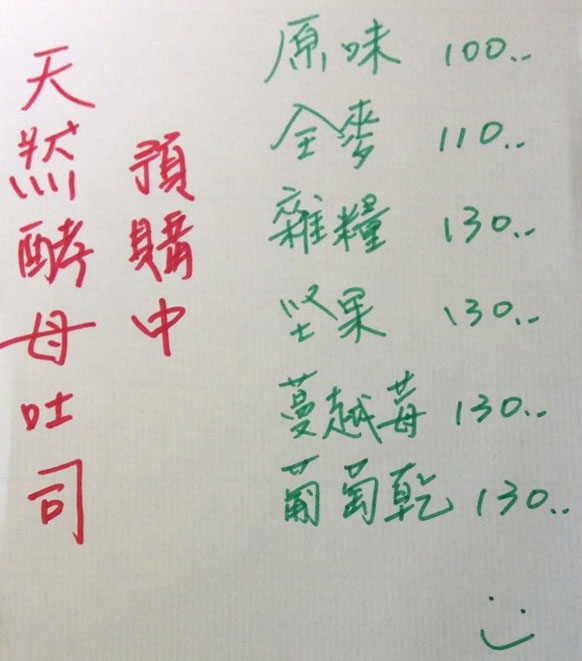 天然酵母吐司
預購中
原味 100..
全麥 110..
雜糧 130..
堅果 130..
蔓越莓 130..
葡萄乾 130..